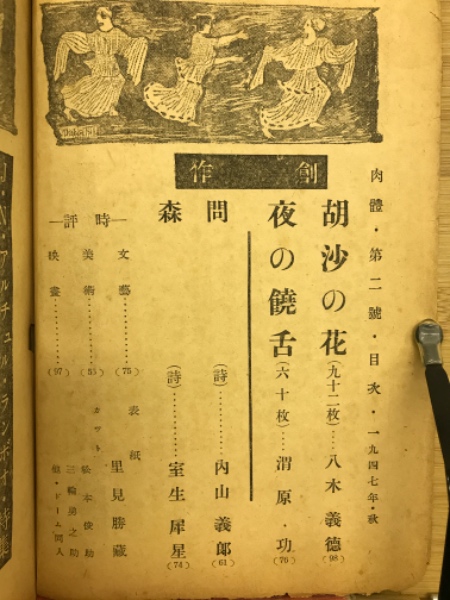 肉體・第二號・目次・一九四七年・秋
創作
胡沙の花(九十二枚)‥‥八木義德(98)
夜の饒舌(六十枚)‥‥渭原・功(76)
問(詩)‥‥‥‥內山義郎(61)
森(詩)‥‥‥‥室生犀星(74)
―時評―
文藝‥‥‥‥(75)
美術‥‥‥‥(55)
映畫‥‥‥‥(97)
表紙 里見勝藏
カット 松本俊助
三輪勇之助
アルチュル・ランボオ・特集